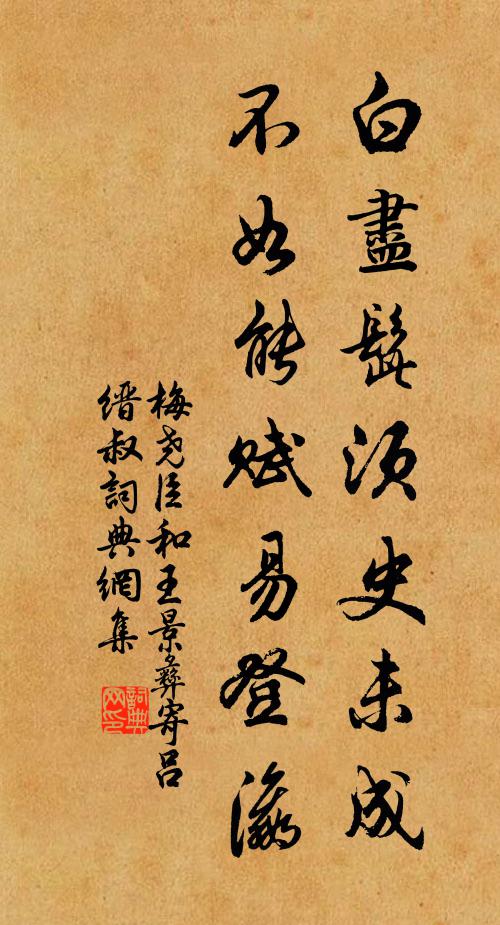 白盡髭須史未成
不如能賦易登瀛
梅尧臣和王景彝寄吕
缙叔詞典網集
詞典网印